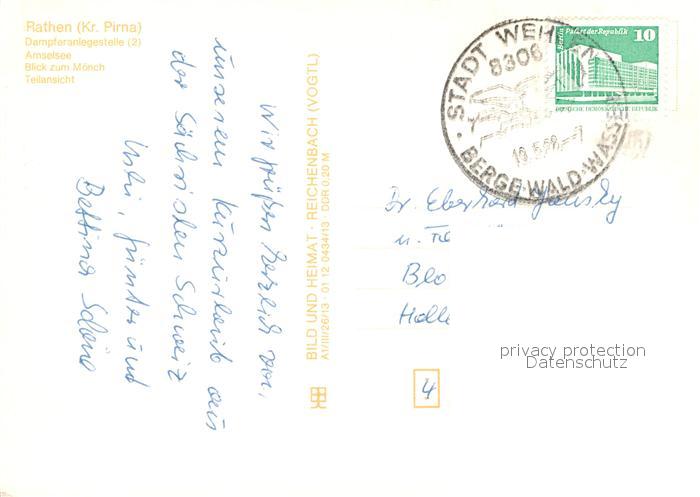 Rathen (Kr. Pirna)
Dampferanlegestelle (2)
Amselsee
Blick zum Mönch
Teilansicht
Wir grüßen herzlich von
unserem Kurzurlaub aus
der Sächsischen Schweiz
günter und
Bettina
BILD UND HEIMAT · REICHENBACH (VOGTL)
A1/III/26/13 · 01 12 0434/13 · DDR 0,20 M
STADT WEHLEN
8306
BERGE·WALD·WASSER
Berlin, Palast der Republik
10
DEUTSCHE DEMOKRATISCHE REPUBLIK
Dr. Eberhard
u.
Halle
4
privacy protection
Datenschutz